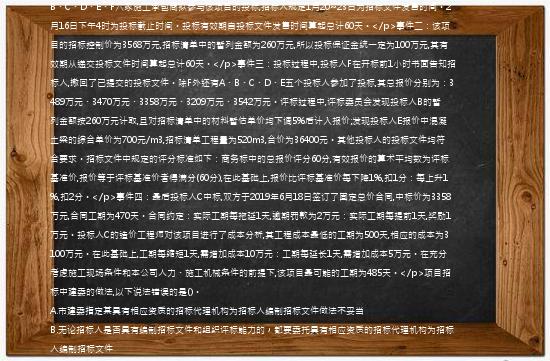 B、C、D、E、F六家施工承包商参与该项目的投标,招标人规定1月20~23日为招标文件发售时间。2
月16日下午4时为投标截止时间。投标有效期自投标文件发售时间算起总计60天。</p>事件二：该项
目的招标控制价为3568万元,招标清单中的暂列金额为260万元,所以投标保证金统一定为100万元,其有
效期从递交投标文件时间算起总计60天。</p>事件三：投标过程中,投标人F在开标前1小时书面告知招
标人,撤回了已提交的投标文件。除F外还有A、B、C、D、E五个投标人参加了投标,其总报价分别为：3
489万元、3470万元、3358万元、3209万元、3542万元。评标过程中,评标委员会发现投标人B的暂
列金额按260万元计取,且对招标清单中的材料暂估单价均下调5%后计入报价;发现投标人E报价中混凝
土梁的综合单价为700元/m3,招标清单工程量为520m3,合价为36400元。其他投标人的投标文件均符
合要求。招标文件中规定的评分标准如下：商务标中的总报价评分60分,有效报价的算术平均数为评标
基准价,报价等于评标基准价者得满分(60分),在此基础上,报价比评标基准价每下降1%,扣1分；每上升1
%,扣2分。</p>事件四：最后投标人C中标,双方于2019年6月18日签订了固定总价合同,中标价为3358
万元,合同工期为470天。合同约定：实际工期每拖延1天,逾期罚款为2万元；实际工期每提前1天,奖励1
万元。投标人C的造价工程师对该项目进行了成本分析,其工程成本最低的工期为500天,相应的成本为3
100万元。在此基础上,工期每缩短1天,需增加成本10万元；工期每延长1天,需增加成本5万元。在充分
考虑施工现场条件和本公司人力、施工机械条件的前提下,该项目最可能的工期为485天。</p>项目招
标中建委的做法,以下说法错误的是()。
A.市建委指定某具有相应资质的招标代理机构为招标人编制招标文件做法不妥当
B.无论招标人是否具有编制招标文件和组织评标能力的，都要委托具有相应资质的招标代理机构为招标
人编制招标文件